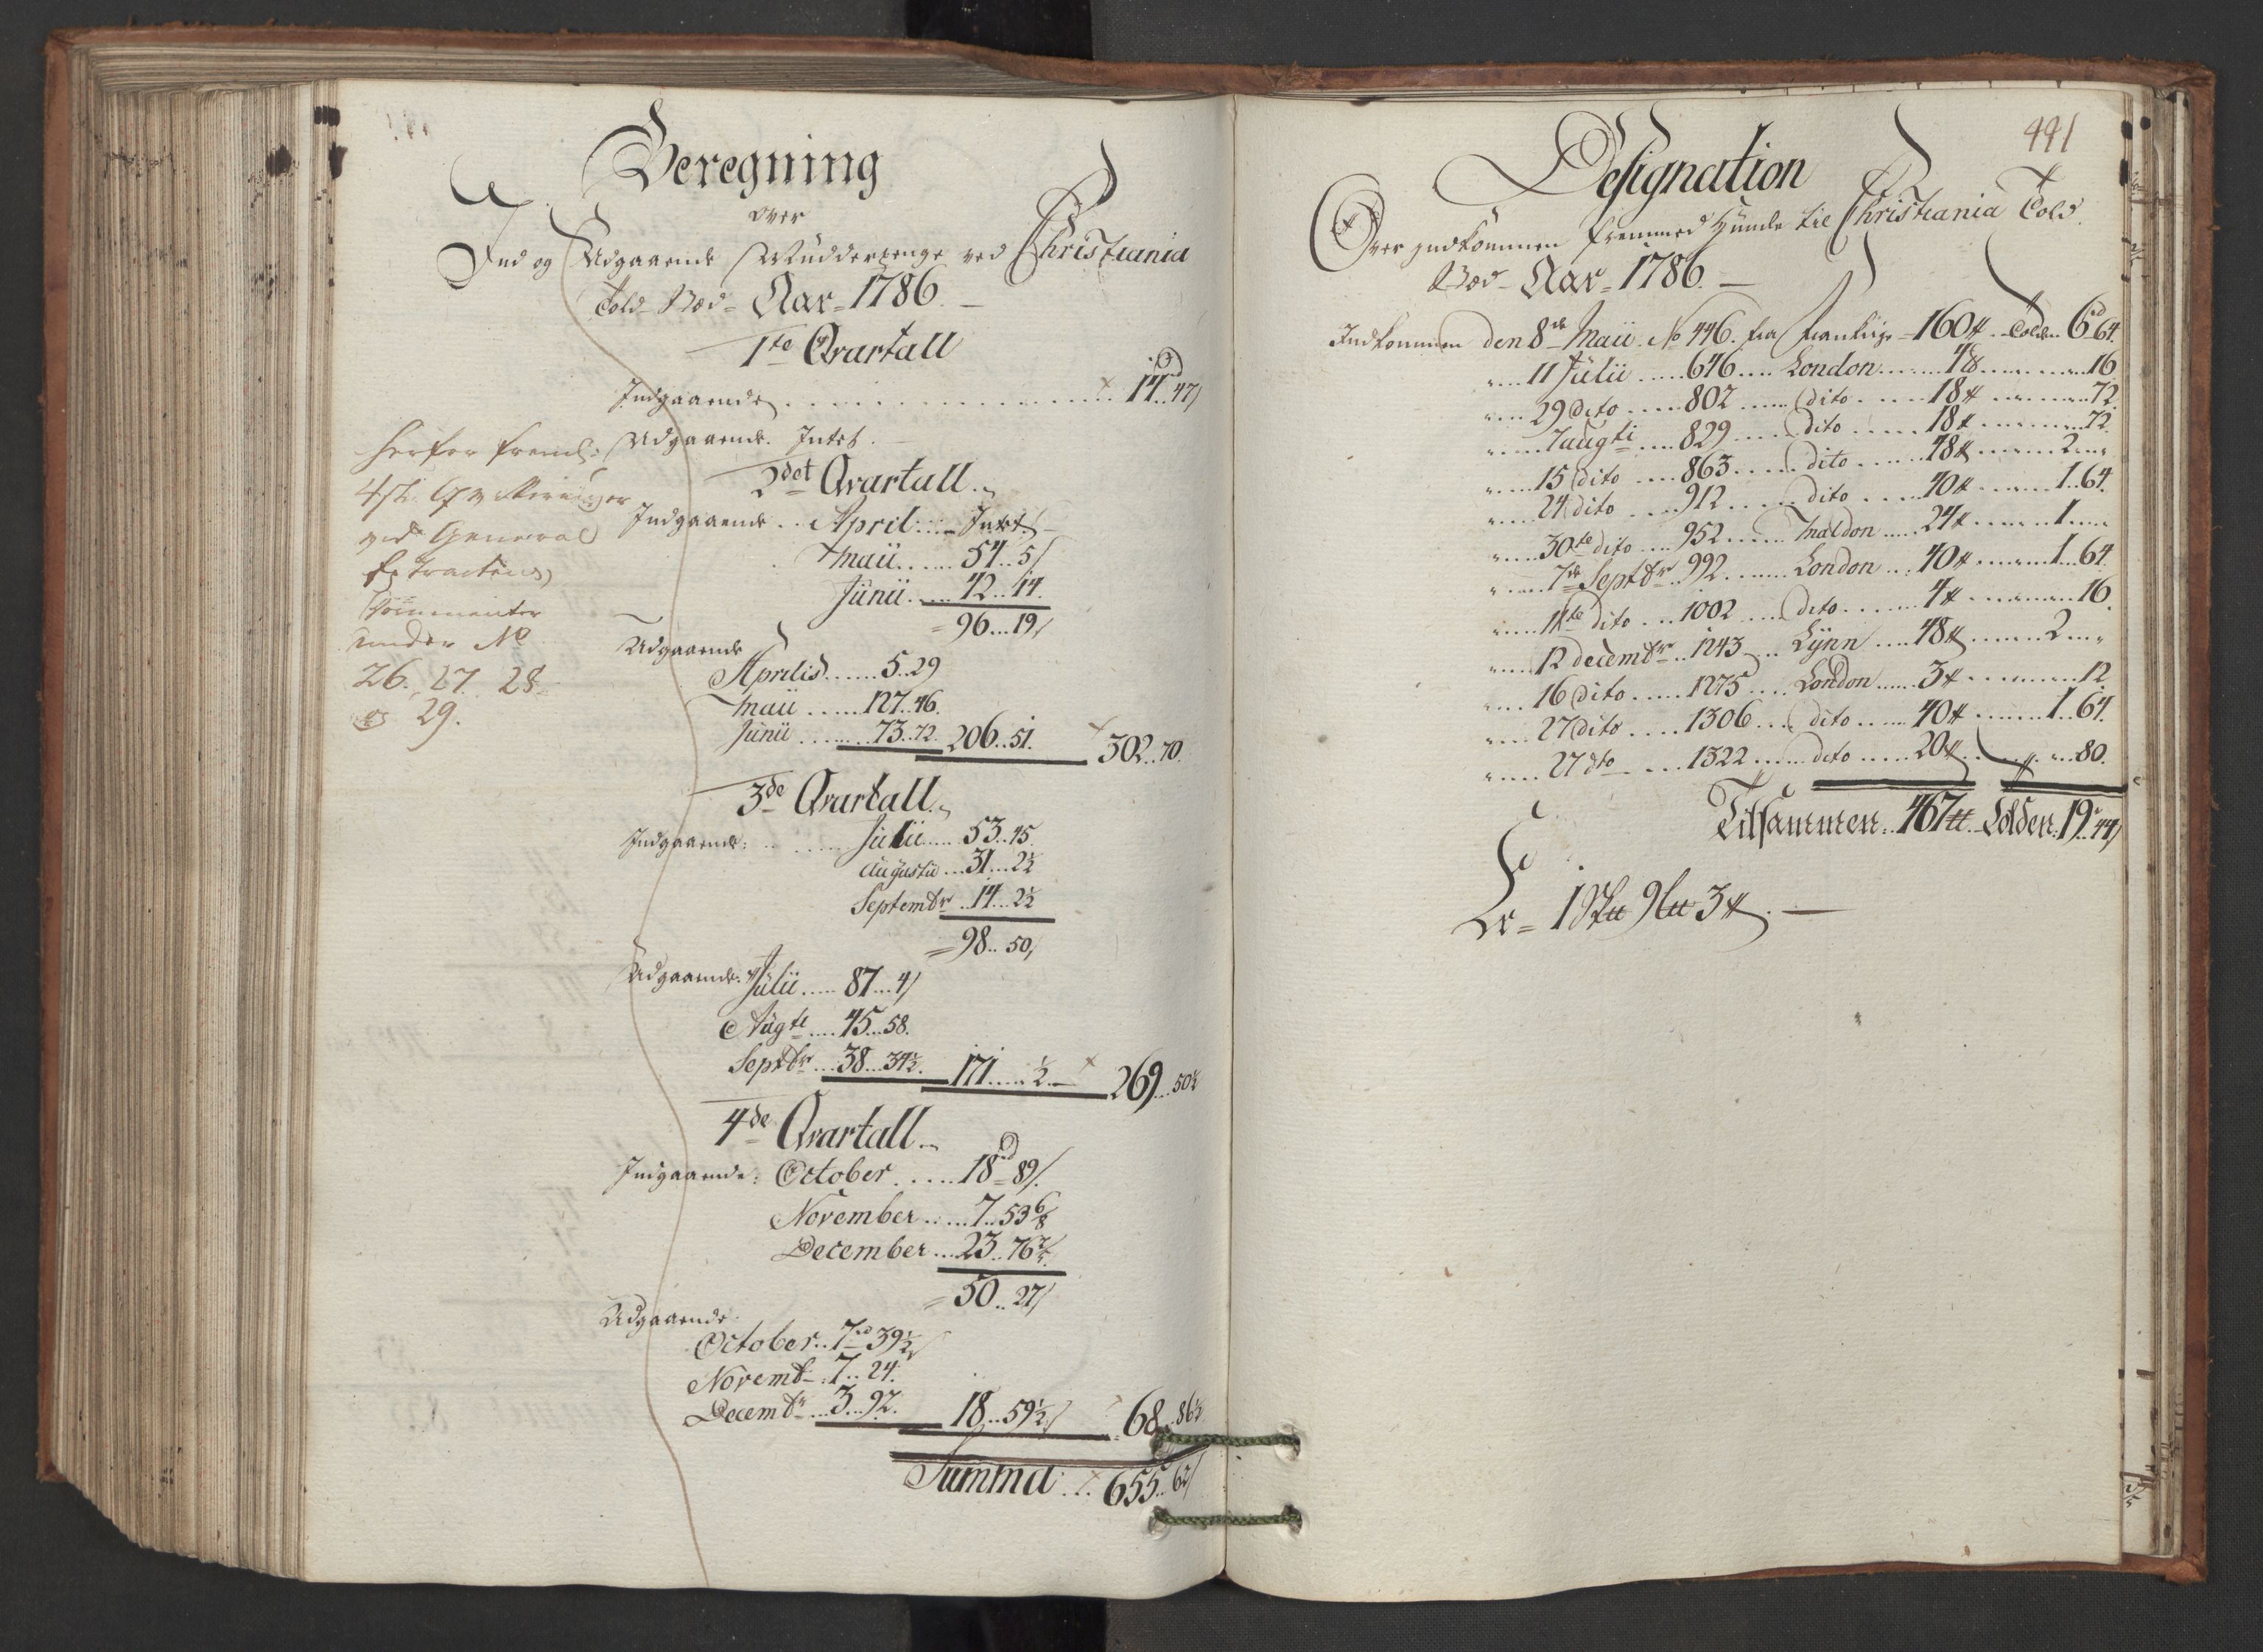 Beregning
over
Ind og Udgaaende Mudderpenge ved Christiania
Told-Sted - Aar = 1786. —
1te Qvartall
Indgaaende . . . . . 14 rd 47 /
Udgaaende. Intet. —
2det Qvartall.
Indgaaende .. April .... Intet —
Maii ...... 54 .. 5 /
Junii ..... 42 .. 14.
= 96 ... 19 /
Udgaaende
Aprilis ...... 5 .. 29
Maii ..... 127 .. 46.
Junii ...... 73 .. 72. 206 .. 51. 302 .. 70.
3de Qvartall.
Indgaaende: ... Julii ..... 53 .. 45.
Augustii ... 31 ... 2½
Septembr .. 14 ... 2½
= 98 .. 50 /
Udgaaende. Julii ..... 87 ... 4 /
Augti .... 45 ... 58.
Septbr .... 38 ... 34½. 171 ..... ½ — 269 ... 50½
4de Qvartall.
Indgaaende: October ..... 18 rd 89 /.
November ..... 7 .. 53 6/8
December ... 23 .. 76 2/8
= 50 .. 27 /
Udgaaende.
October .. 7 rd 39½ /
Novembr .. 7 .. 24.
Decembr ... 3 .. 92. 18 .. 59½ / 68 .. 86½
Summa ... 655 .. 62 /
herfor
4 st.
ved General
Extracten
Documenter
under No
26. 27. 28.
29.
441
Designation
Over indkommen fremmed Humle til Christiania Told
Sted - Aar = 1786. —
Indkommen den 8de Maii. No 446. fra 160 ℔ .. Tolden 6 rd 64.
.... 11 Julii ..... 646 .... London ....... 4 ℔ ......... 16
.... 29 dito ..... 802 ...... dito ...... 18 ℔ ........ 72.
.... 7 augti .... 829 ...... dito ...... 18 ℔ ........ 72.
.... 15 dito .... 863 ...... dito ...... 48 ℔ ...... 2 ...
.... 24 dito .... 912 ...... dito ...... 40 ℔ ...... 1 .. 64.
.... 30te dito .... 952 ...... Maldon ..... 24 ℔ ...... 1 ....
.... 7de Septbr .. 992 ...... London ... 40 ℔ ...... 1 .. 64.
.... 11te dito ... 1002 .... dito ...... 4 ℔ ......... 16.
.... 12 decembr .. 1243 .... Lÿnn .... 48 ℔ ...... 2 ...
.... 16 dito ..... 1275 .... London ..... 3 ℔ ......... 12
.... 27 dito .... 1306 .... dito ..... 40 ℔ ...... 1 .. 64.
.... 27 dto .... 1322 ..... dito ..... 20 ℔ ......... 80.
Tilsammen .. 467 ℔ .. Tolden: 19 rd 44 /
Er = 1 9 3 ℔. —